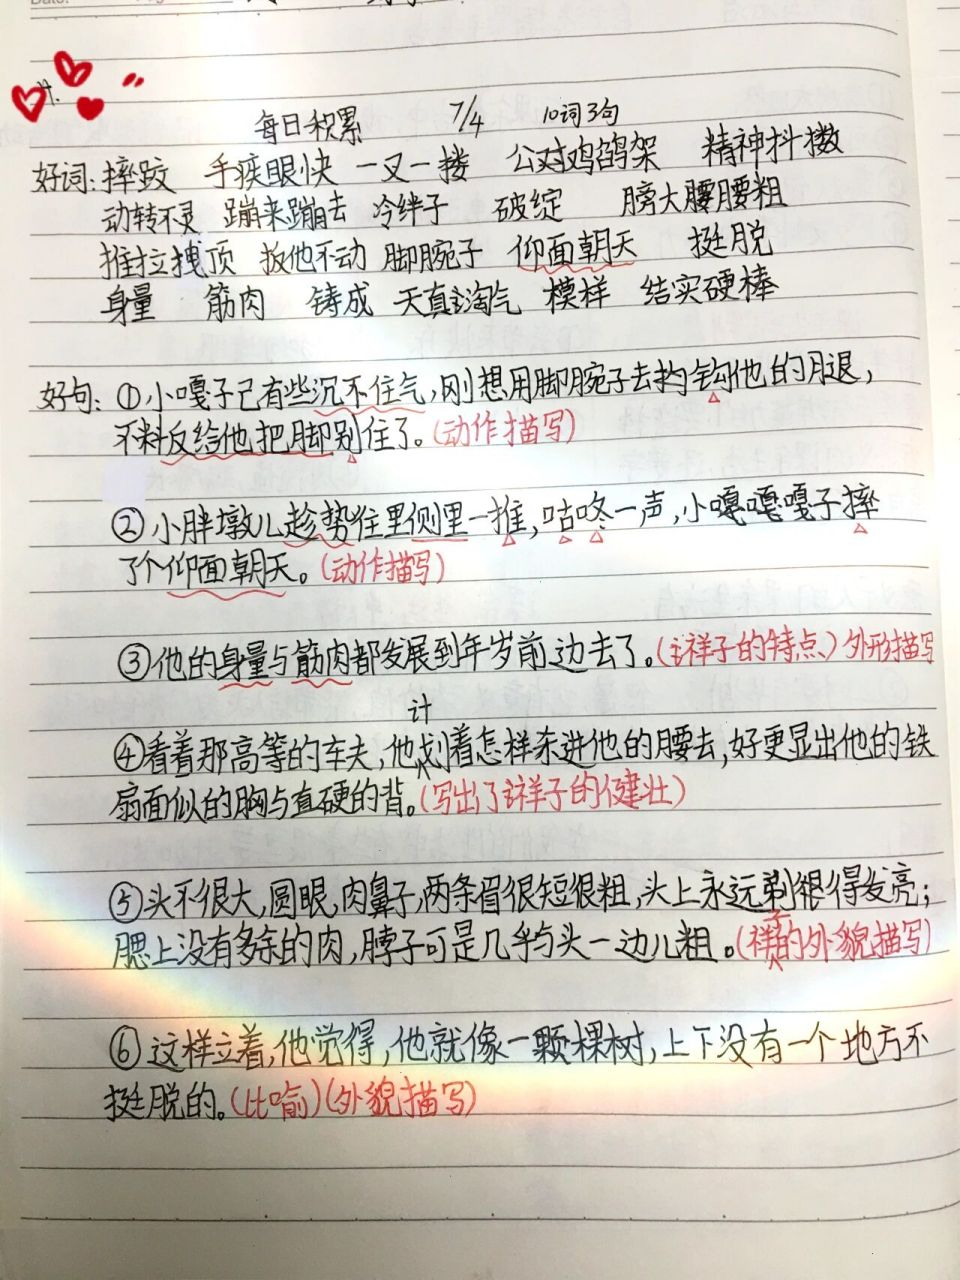 每日积累 7/4 10词3句
好词:摔跤 手疾眼快 一叉一搂 公对鸡鹐架 精神抖擞
动转不灵 蹦来蹦去 冷绊子 破绽 膀大腰腰粗
推拉拽顶 扳他不动 脚腕子 仰面朝天 挺脱
身量 筋肉 铸成 天真淘气 模样 结实硬棒
好句:①小嘎子已有些沉不住气,刚想用脚腕子去钩他的腿,
不料反给他把脚别住了。(动作描写)
②小胖墩儿趁势往里侧里一推,咕咚一声,小嘎嘎嘎子摔
了个仰面朝天。(动作描写)
③他的身量与筋肉都发展到年岁前边去了。(祥子的特点)外形描写
④看着那高等的车夫,他计划着怎样杀进他的腰去,好更显出他的铁
扇面似的胸与直硬的背。(写出了祥子的健壮)
⑤头不很大,圆眼,肉鼻子,两条眉很短很粗,头上永远剃得发亮;
腮上没有多余的肉,脖子可是几乎与头一边儿粗。(祥子的外貌描写)
⑥这样立着,他觉得,他就像一颗棵树,上下没有一个地方不
挺脱的。(比喻)(外貌描写)